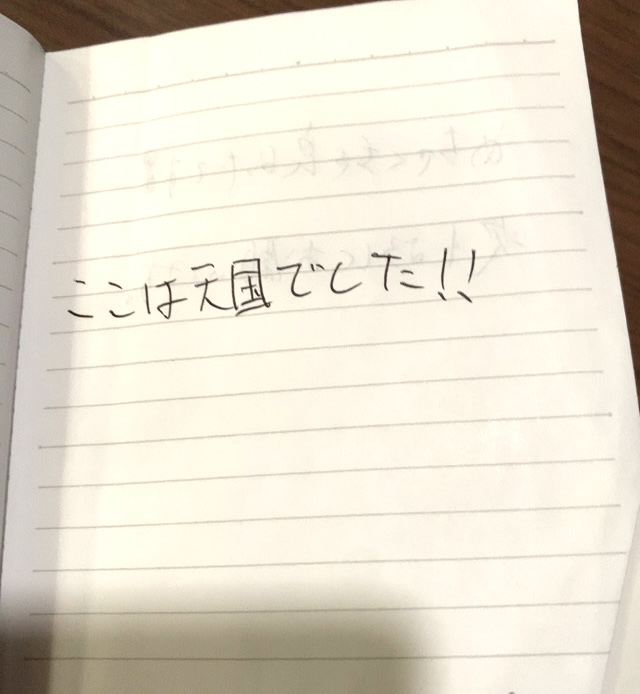 ここは天国でした!!